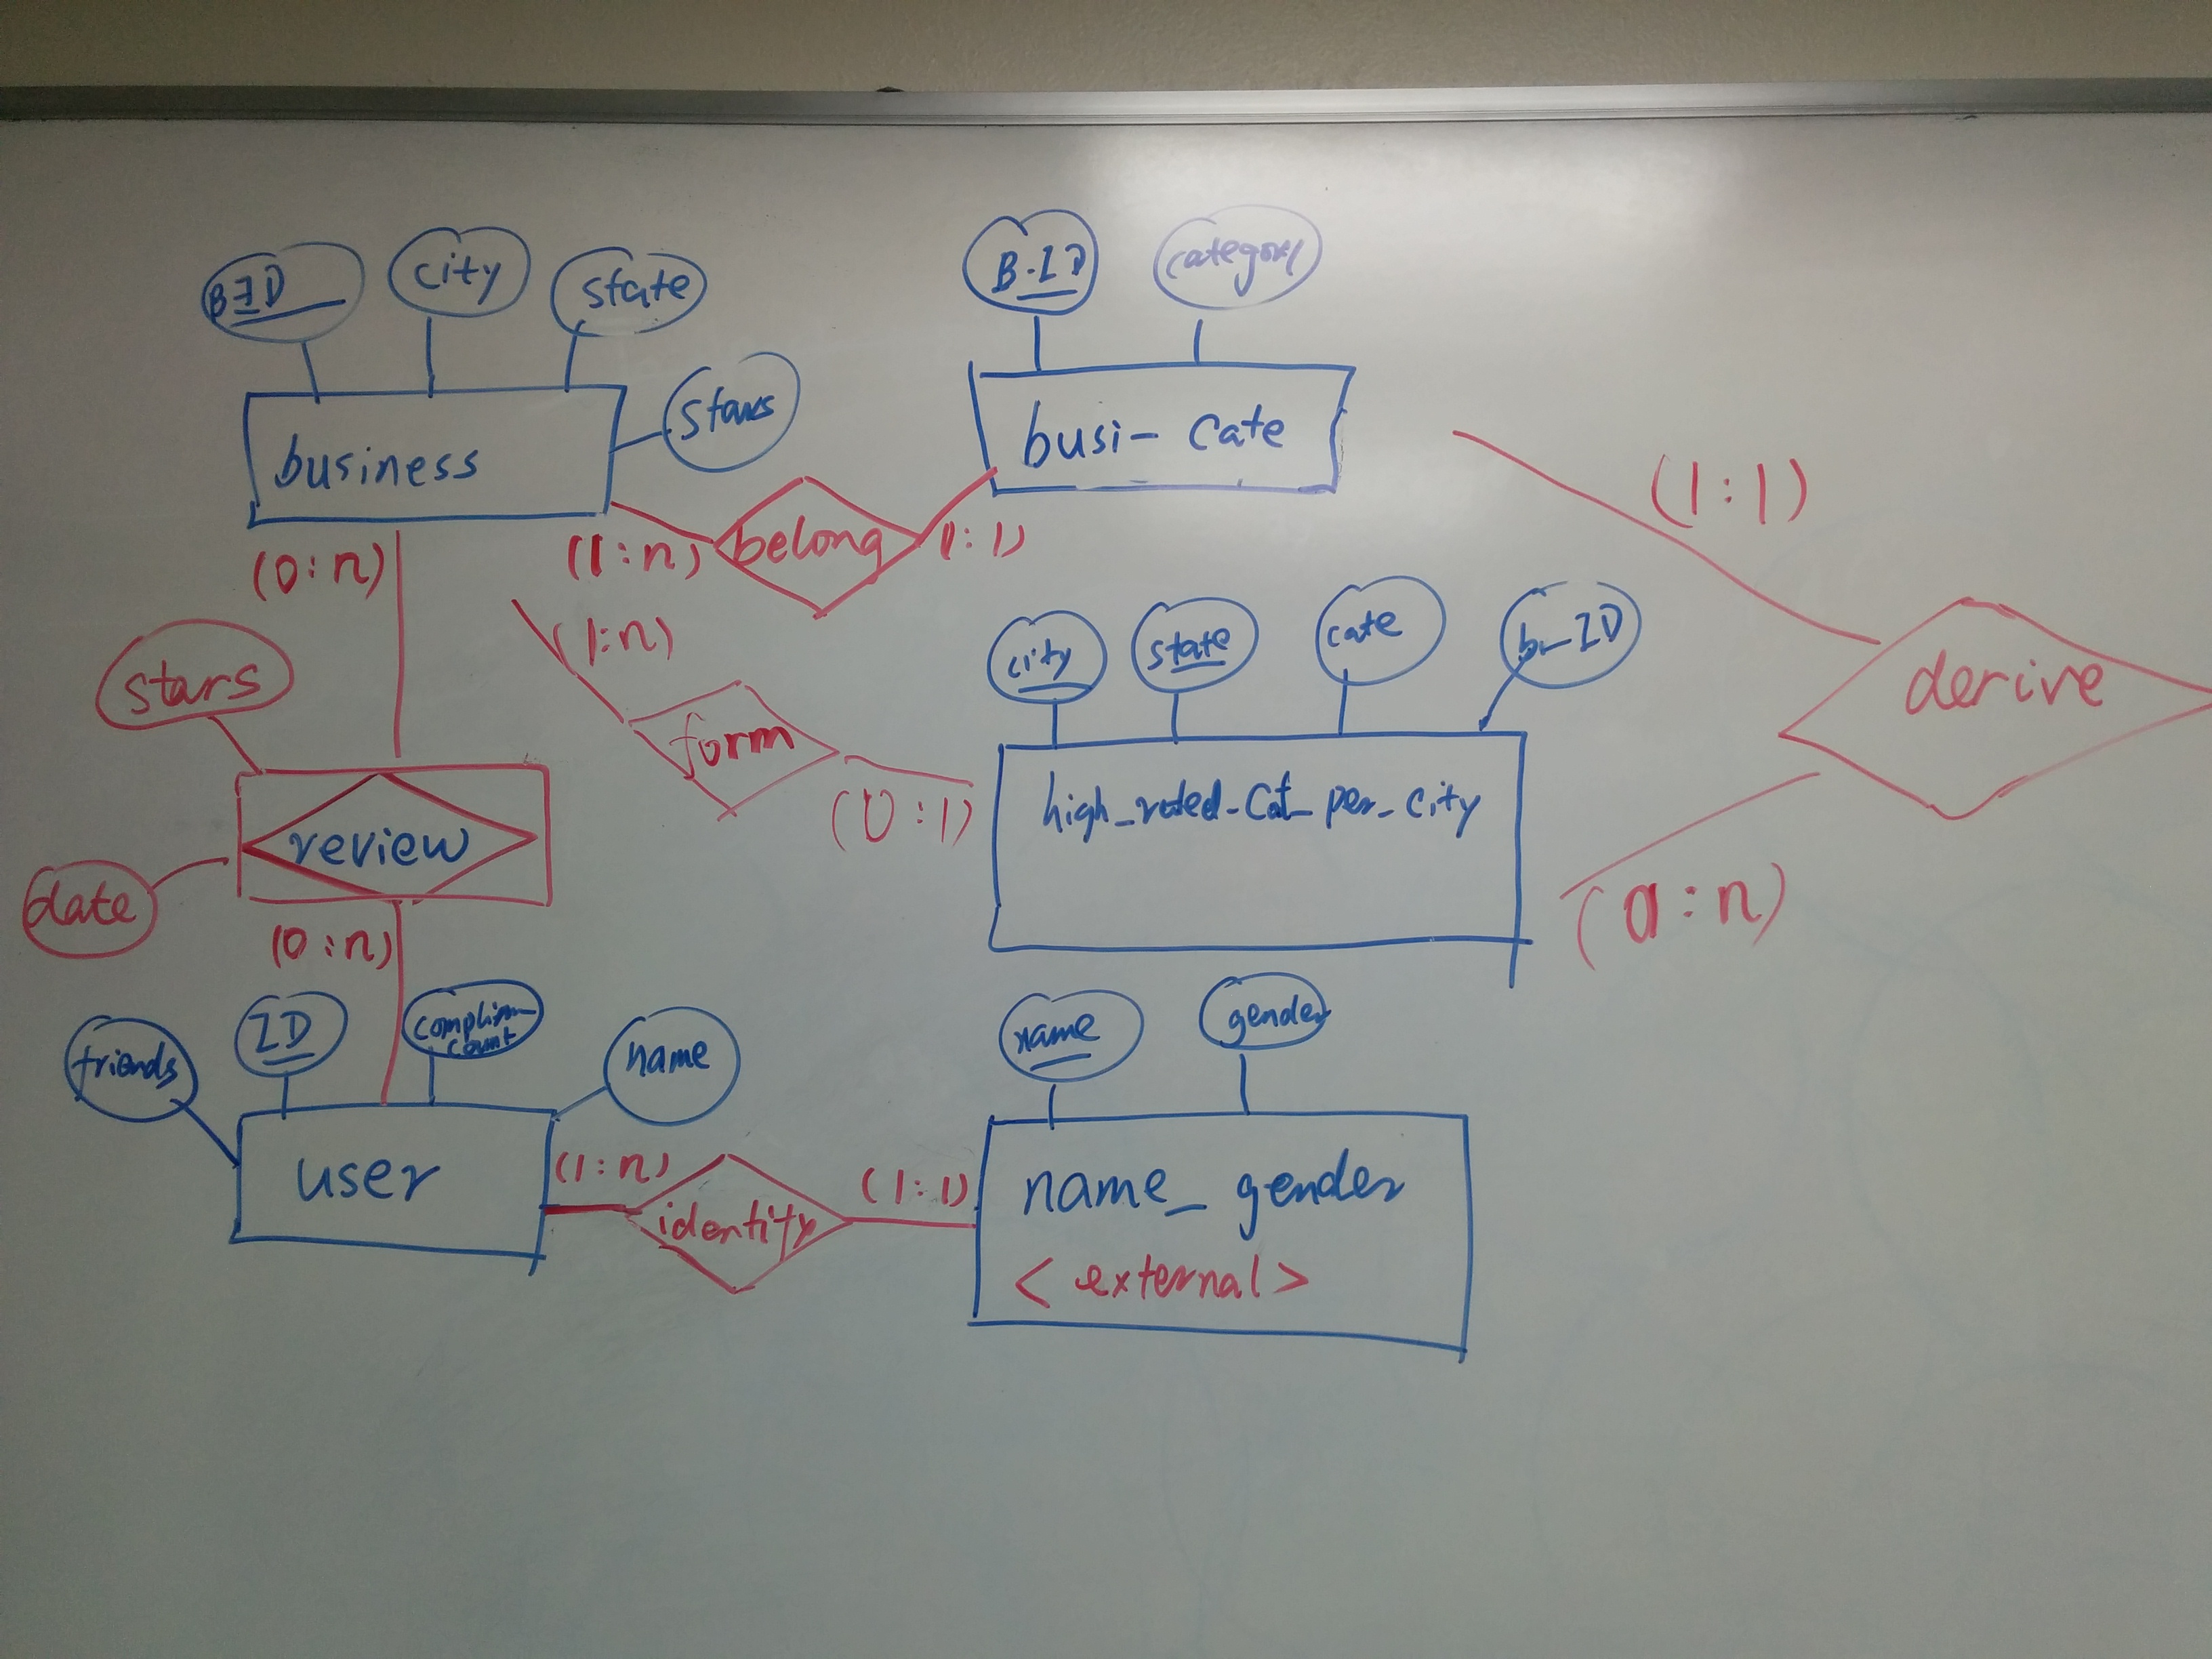 BID
city
state
stars
business
B-ID
category
busi- cate
(0:n)
(1:n)
belong
(1:1)
(1:1)
(1:n)
form
(0:1)
city
state
cate
b_ID
high_rated_Cat_per_city
derive
(0:n)
stars
review
date
(0:n)
friends
ID
count
name
user
(1:n)
identity
(1:1)
name
gender
name_gender
<external>